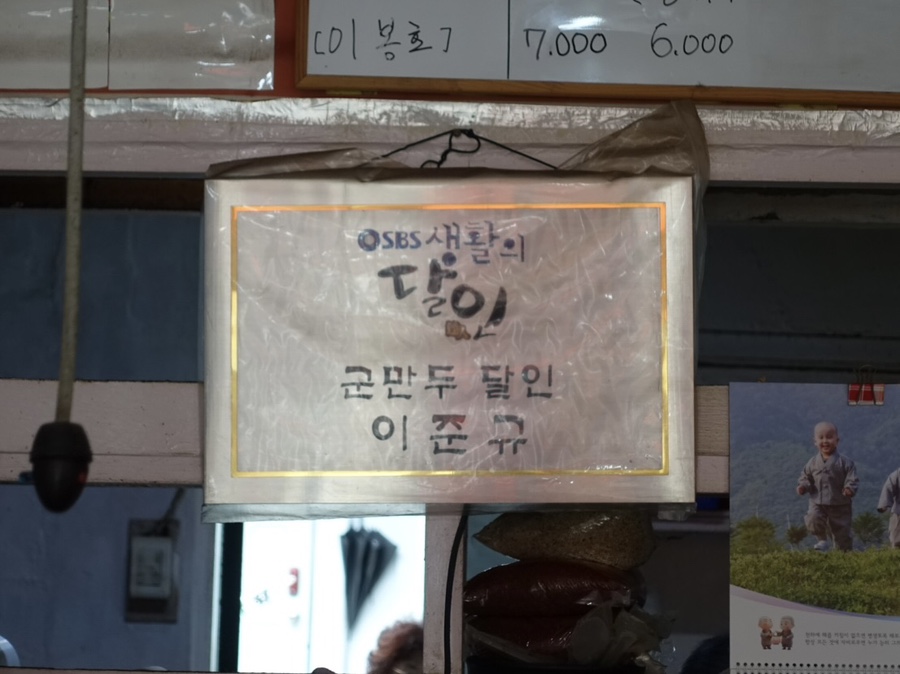 [이봉호] 7.000 6.000
SBS 생활의
달인
군만두 달인
이준규